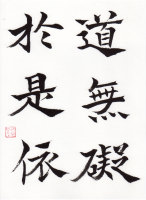 道無礙
於是依